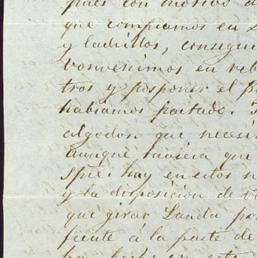 pues con motivo d
que compramos en
y ladrillos, consegui
convenimos en reb
tros y posponer el p
habiamos pactado.
algodon que necesi
aunque tuviera que
hay en estos n
y la disposicion de
que girar Landa po
frente á la parte de